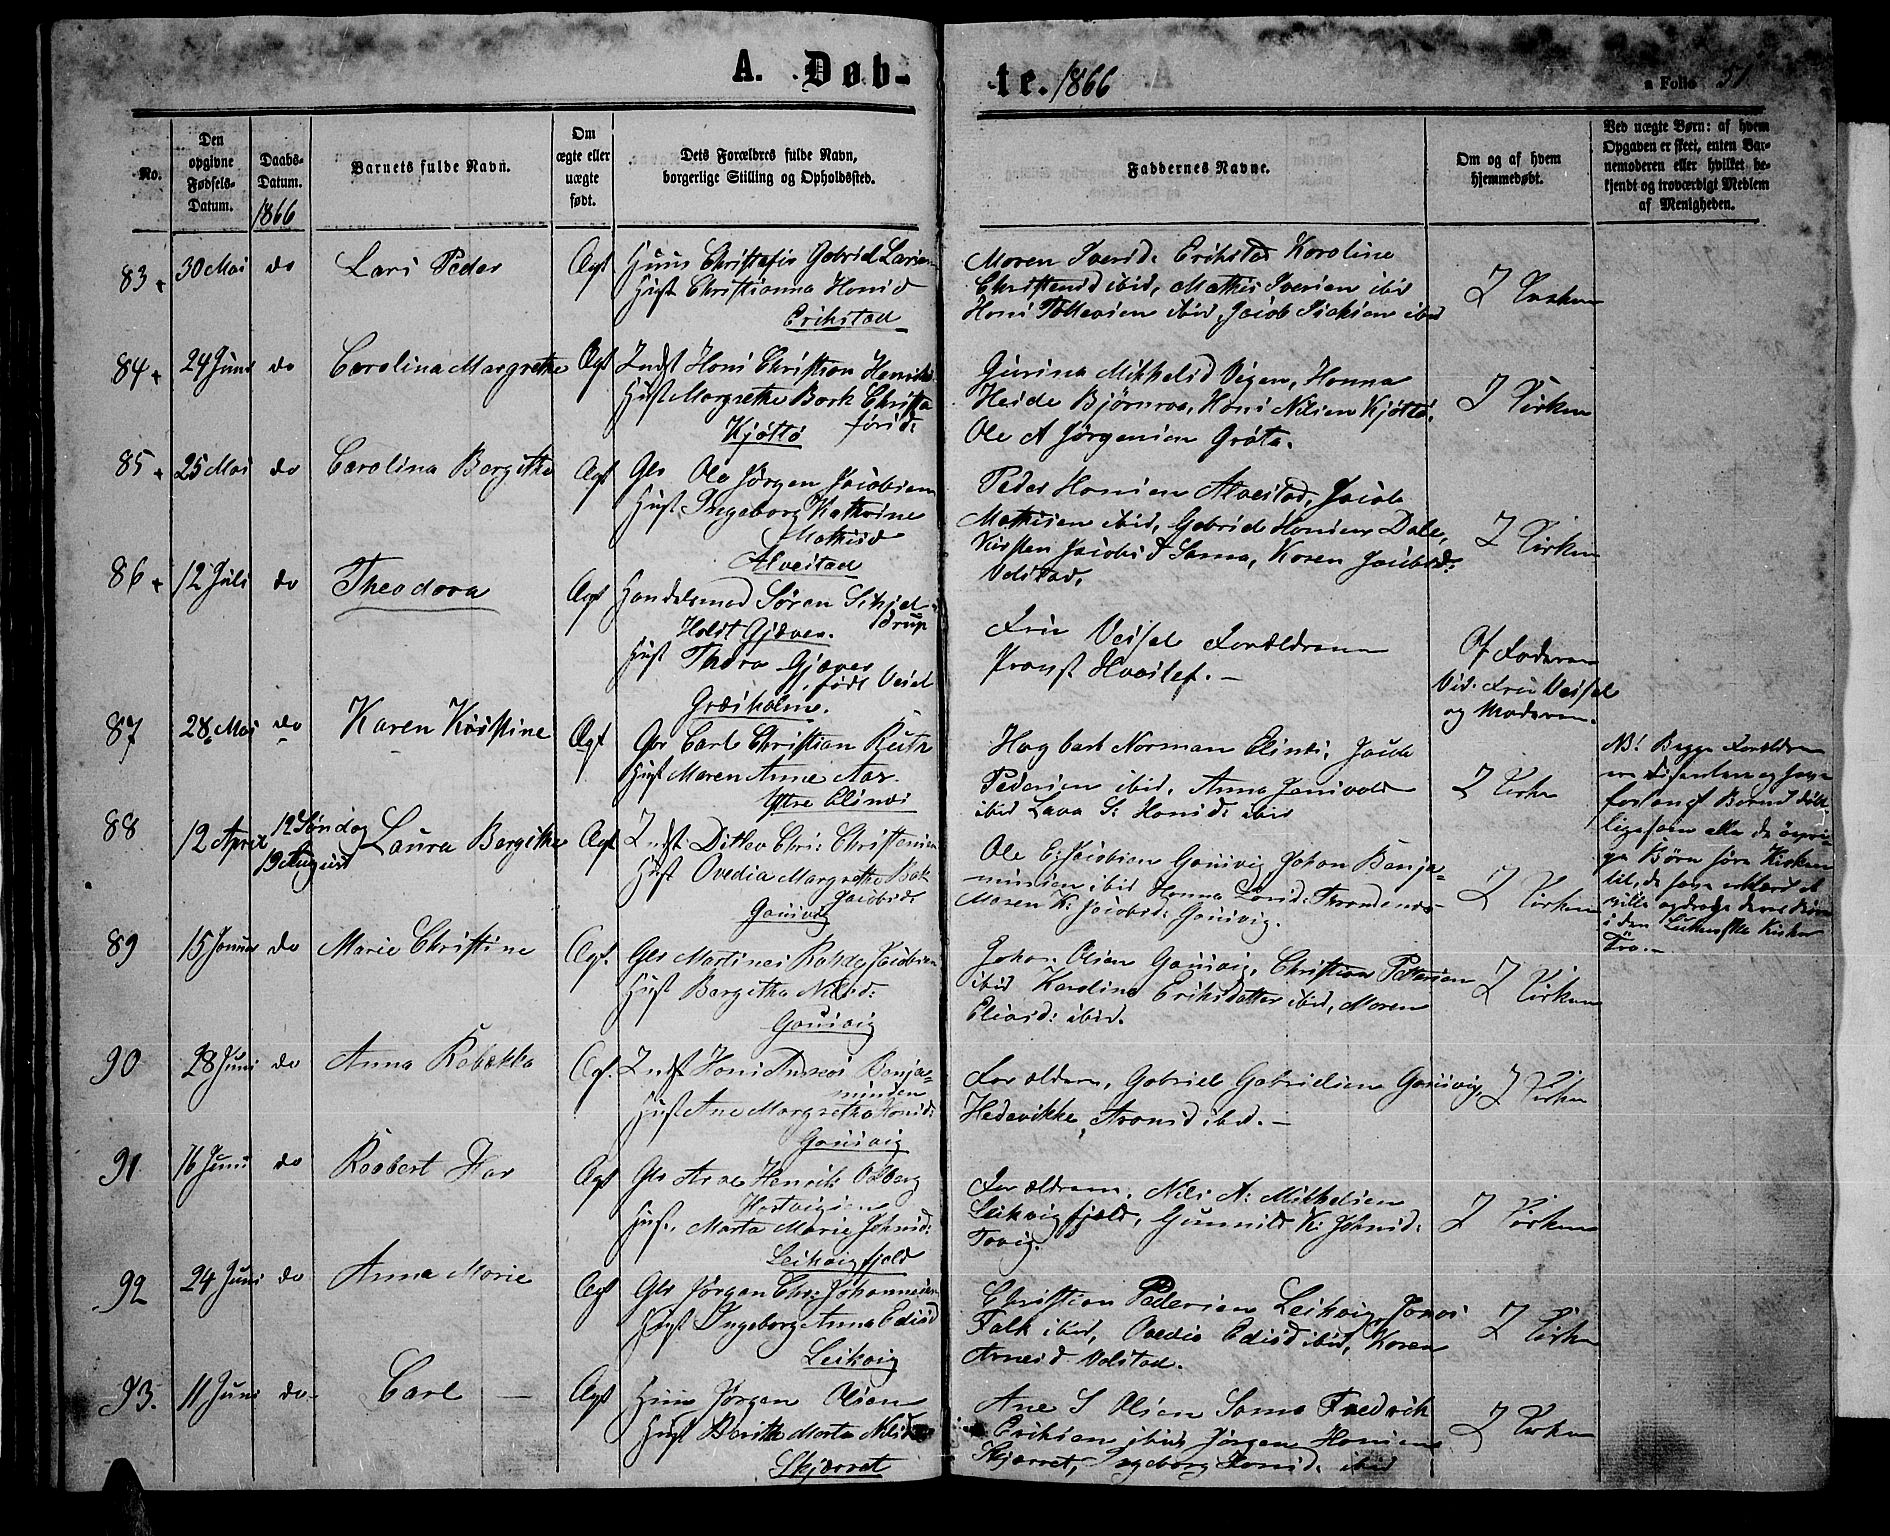 A. Døb-
te. 1866
a Folio 51
No.
Den opgivne Fødsels-Datum.
Daabs-Datum. 1866
Barnets fulde Navn.
Om ægte eller uægte født.
Dets Forældres fulde Navn, borgerlige Stilling og Opholdssted.
Faddernes Navne.
Om og af hvem hjemmedøbt.
Ved uægte Børn: af hvem Opgaven er skeet, enten Barnemoderen eller hvilket bekjendt og troværdigt Medlem af Menigheden.
83 30 Mai do Lars Peder Ægt
Huus Christofer Gabriel Larsen
Hust Christianna Hansd
Erikstad
Maren Iversd: Erikstad Karoline
Christensd ibid, Mathis Iversen ibid
Hans Tollevsen ibid, Jacob Isaksen ibid
I Kirken
84 24 Juni do Carolina Margrethe Ægt
Indst Hans Christian
Hust Margrethe Bark
Kjøttø
Gurina Mikkelsd Vigen, Hanna
Heide Bjørnraa, Hans Nilsen Kjøttø,
Ole A Jørgensen Grøta.
I Kirken
85 25 Mai do Carolina Bergitha Ægt
Gbr Ole Jørgen Jacobsen
Hust Ingeborg Kathrine
Mathisd
Alvestad
Peder Hansen Alvestad, Jacob
Mathisen ibid, Gabriel Hansen Dale,
Kirsten Jacobsd Sama, Karen Jacobsd:
Volstad.
I Kirken
86 12 Juli do Theodora Ægt
Handelsmad Søren Schjel-
drup
Holst Gjæver.
Hust Thora Gjæver
født Vesel
Græsholmen.
Fru Vessel Forældrene
Provst Hvoslef.
Af Faderen
Vid: Fru Vessel
og Moderen.
87 28 Mai do Karen Kristine Ægt
Gbr Carl Christian Bøth
Hust Maren Anne Aar.
Ytre Elgsnes
Hagbart Norman
Pedersen ibid, Anna
ibid Lava S: Hansd: ibid
I Kirken
NB! Begge Forældrene
ere Dissentere og
forlangt Barnet døbt
ligesom alle de øvri-
ge Børn
til, da
ville opdrage deres Børn
i den Lutherske Kirkes
Tro.
88 12 April 12 Søndag
19 August Laura Bergitha Ægt
Indst Ditlev Chr: Christensen
Hust Ovedia Margrethe Bak
Jacobsd:
Gausvig
Ole E: Jacobsen Gausvig, Johan Benja-
minsen ibid Hanna
Maren K: Jacobsd: Gausvig.
I Kirken
89 15 Januar do Marie Christine Ægt.
Gbr Martines Jacobsen
Hust Bergitha Nilsd:
Gausvig
Johan Olsen Gausvig, Christian Pettersen
ibid Karolina Eriksdatter ibid, Maren
Eliasd: ibid.
I Kirken
90 28 Juni do Anna Rebekka Ægt.
Indst Hans Benja-
minsen
Hust Ane Margretha
Gausvig
Forældrene, Gabriel Gabrielsen Gausvig,
Hedevikke Aronsd ibid.
I Kirken
91 16 Juni do Robert Ægt
Gbr Arne Henrik
Hartvigsen
Hust. Marta Marie Johnsd:
Leikvigfjeld
Forældrene, Nils A: Mikkelsen
Leikvigfjeld, Gunnild K: Johnsd:
I Kirken
92 24 Juni do Anna Marie Ægt
Gbr Jørgen Chr: Johannesen
Hust Ingeborg Anna
Leikvig
Christian Pedersen Leikvig, Jonas
Falk ibid, Ovedia ibid, Karen
Arnesd Volstad.
I Kirken
93. 11 Juni do Carl Ægt
Huus Jørgen Olsen
Hust Berith Marta
Skjærret
Ane S Olsen Sama Fredrik
Eriksen ibid Jørgen Hansen
Skjærret, Ingeborg Hansd: ibid
I Kirken